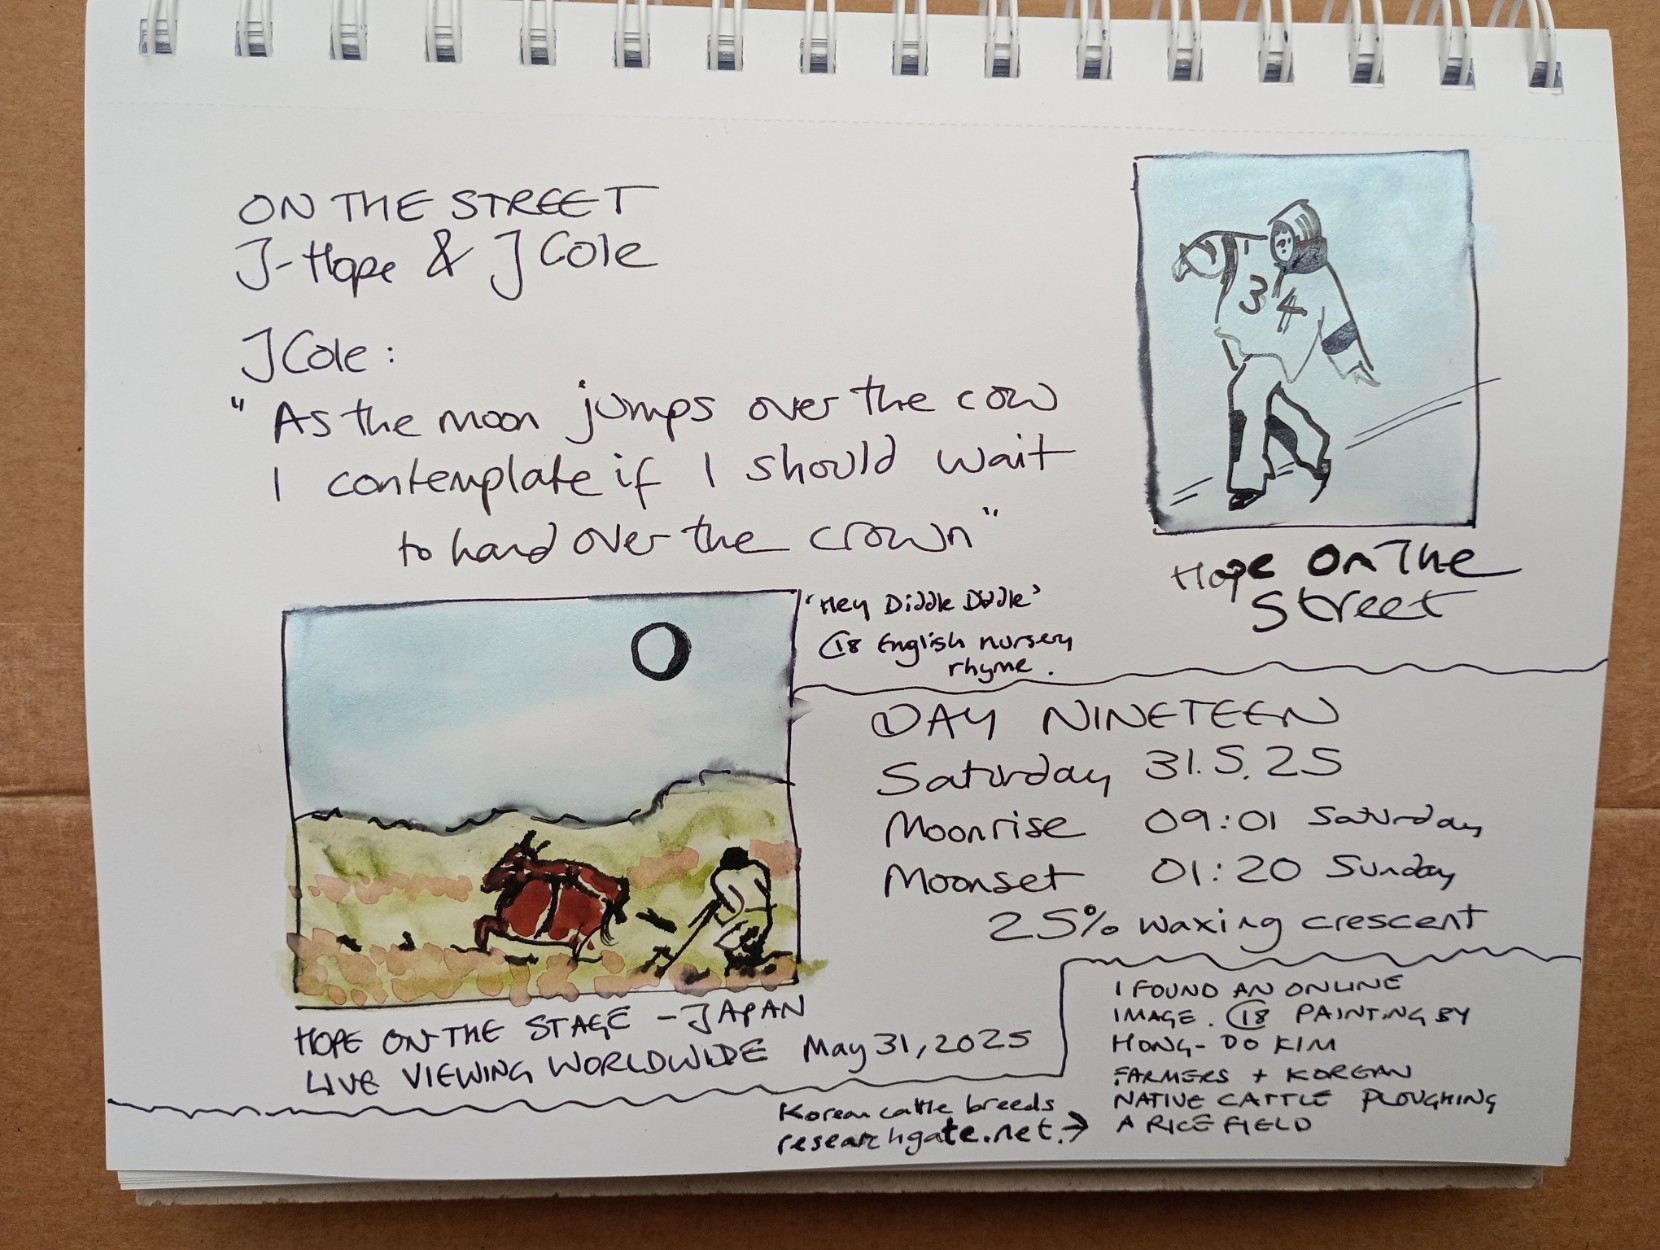 ON THE STREET
J-Hope & J Cole
J Cole:
"As the moon jumps over the cow
I contemplate if I should wait
to hand over the crown"
34
Hope On The
Street
'Hey Diddle Diddle'
C18 English nursery
rhyme.
DAY NINETEEN
Saturday 31.5.25
Moonrise 09:01 Saturday
Moonset 01:20 Sunday
25% waxing crescent
HOPE ON THE STAGE - JAPAN
LIVE VIEWING WORLDWIDE May 31, 2025
I FOUND AN ONLINE
IMAGE. C18 PAINTING BY
HONG-DO KIM
FARMERS + KOREAN
NATIVE CATTLE PLOUGHING
A RICE FIELD
Korean cattle breeds
researchgate.net. →